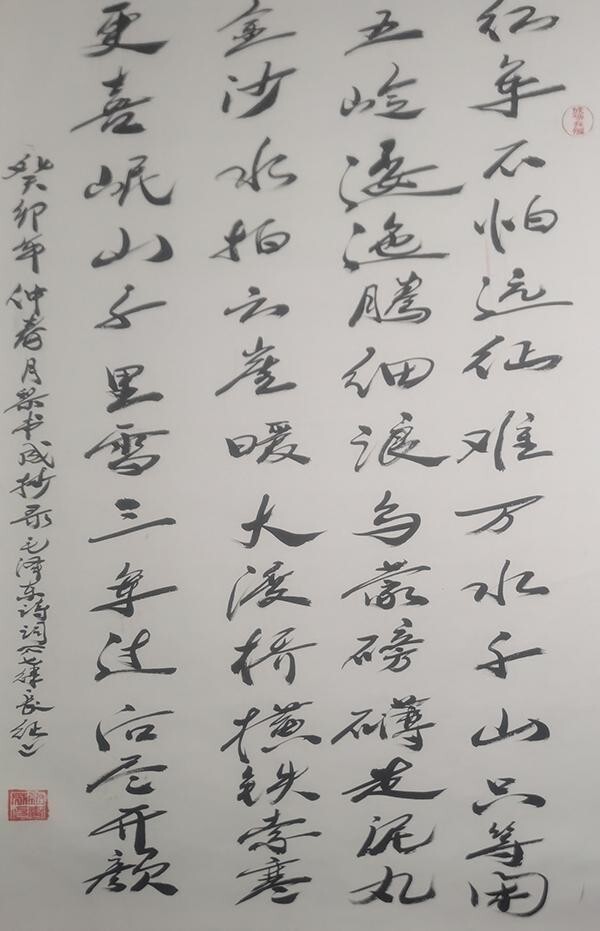 红军不怕远征难万水千山只等闲
五岭逶迤腾细浪乌蒙磅礴走泥丸
金沙水拍云崖暖大渡桥横铁索寒
更喜岷山千里雪三军过后尽开颜
癸卯年仲春月书成抄录毛泽东诗词《七律长征》